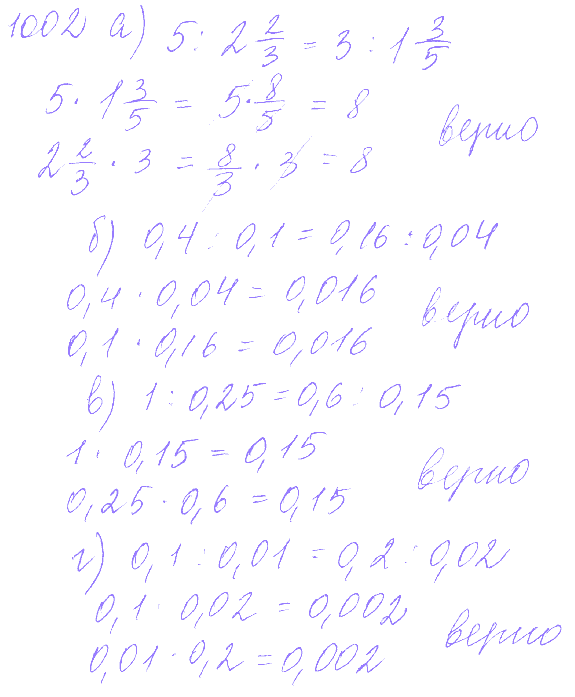 1002 а) 5 : 2 2/3 = 3 : 1 3/5
5 · 1 3/5 = 5 · 8/5 = 8
верно
2 2/3 · 3 = 8/3 · 3 = 8
б) 0,4 : 0,1 = 0,16 : 0,04
0,4 · 0,04 = 0,016
верно
0,1 · 0,16 = 0,016
в) 1 : 0,25 = 0,6 : 0,15
1 · 0,15 = 0,15
верно
0,25 · 0,6 = 0,15
г) 0,1 : 0,01 = 0,2 : 0,02
0,1 · 0,02 = 0,002
верно
0,01 · 0,2 = 0,002